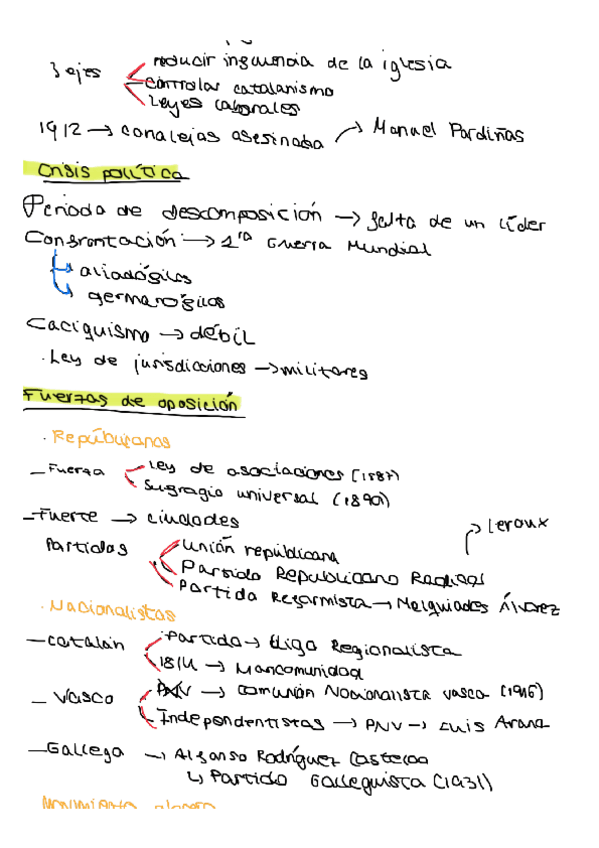 3 ejes
reducir influencia de la iglesia
controlar catalanismo
Leyes laborales
1912 → Canalejas asesinado → Manuel Pardiñas
Crisis política
Período de descomposición → falta de un líder
Confrontación → 1ra Guerra Mundial
aliadófilos
germanófilos
Caciquismo → débil
. Ley de jurisdicciones → militares
Fuerzas de oposición
. Republicanos
– Fuerza
Ley de asociaciones (1887)
Sufragio universal (1890)
– Fuerte → ciudades
→ Leroux
Partidos
Unión republicana
Partido Republicano Radical
Partido Reformista → Melquiades Álvarez
. Nacionalistas
– catalán
Partido → Lliga Regionalista
1814 → Mancomunidad
– Vasco
PNV → Comunión Nacionalista Vasca (1916)
Independentistas → PNV → Luis Arana
– Gallego → Alfonso Rodríguez Castelao
↳ Partido Galleguista (1931)
Movimiento obrero